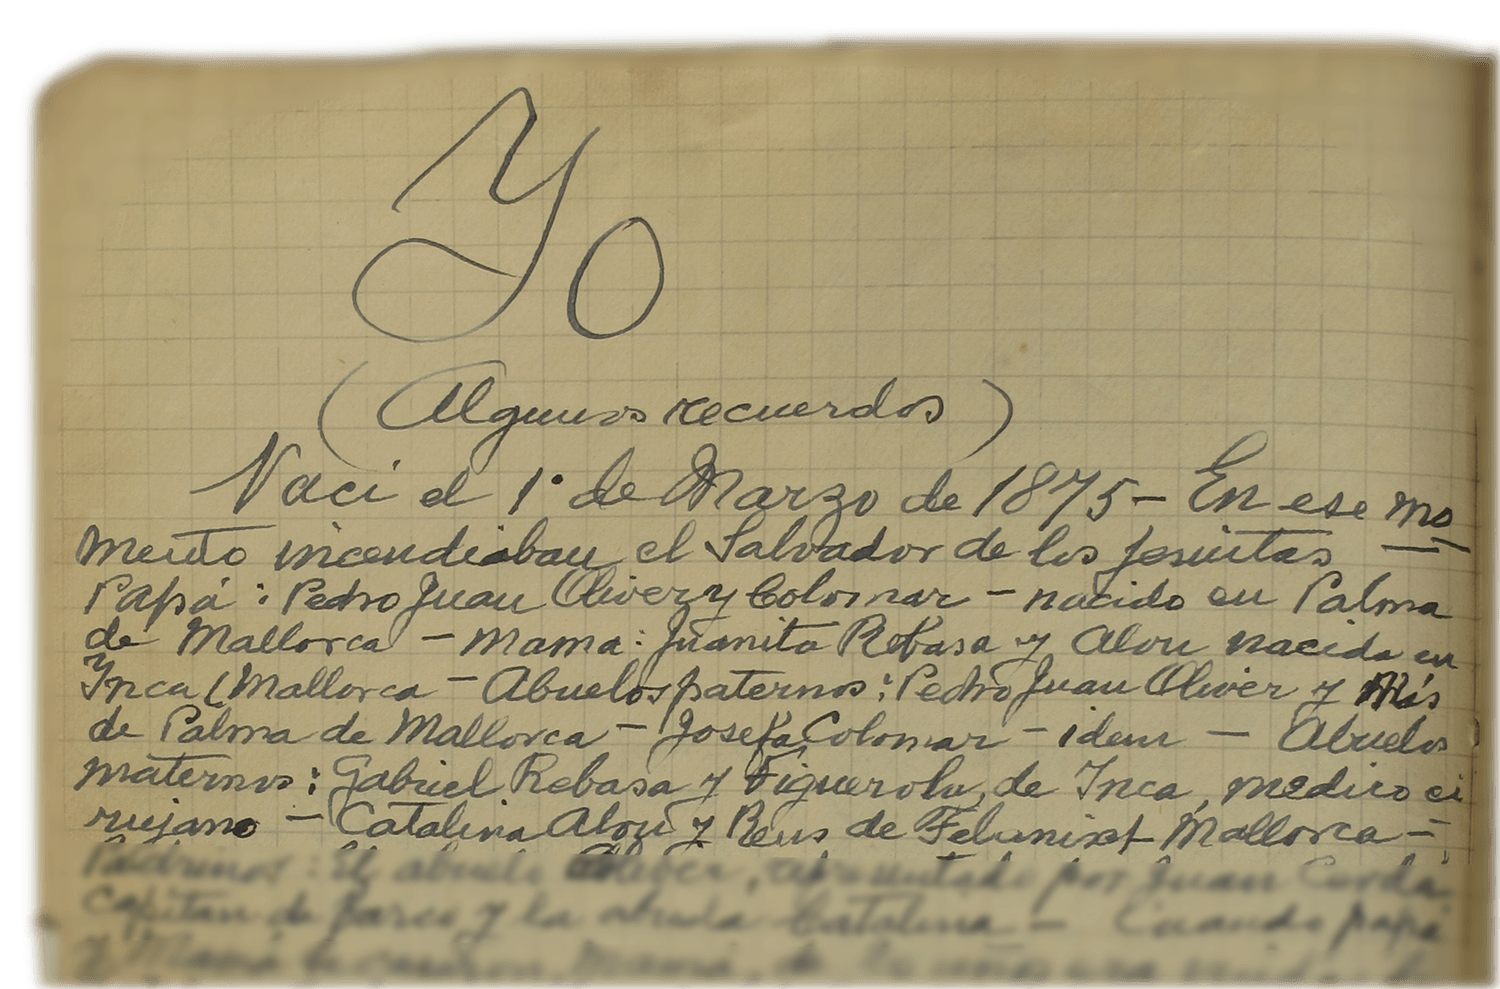 Yo
(Algunos recuerdos)
Nací el 1º de Marzo de 1875 - En ese mo
mento incendiaban el Salvador de los Jesuitas —
Papá: Pedro Juan Oliver y Colomar - nacido en Palma
de Mallorca - Mama: Juanita Rebasa y Alou nacida en
Inca (Mallorca - Abuelos paternos: Pedro Juan Oliver y Más
de Palma de Mallorca - Josefa Colomar - idem — Abuelos
maternos: Gabriel Rebasa y Figuerola, de Inca, medico ci
rujano - Catalina Alou y Reus de Felanixt Mallorca -
Padrinos: El abuelo Oliver, representado por Juan Cerdá
capitan de barco y la abuela Catalina - Cuando papá
y Mamá se casaron, Mamá, de